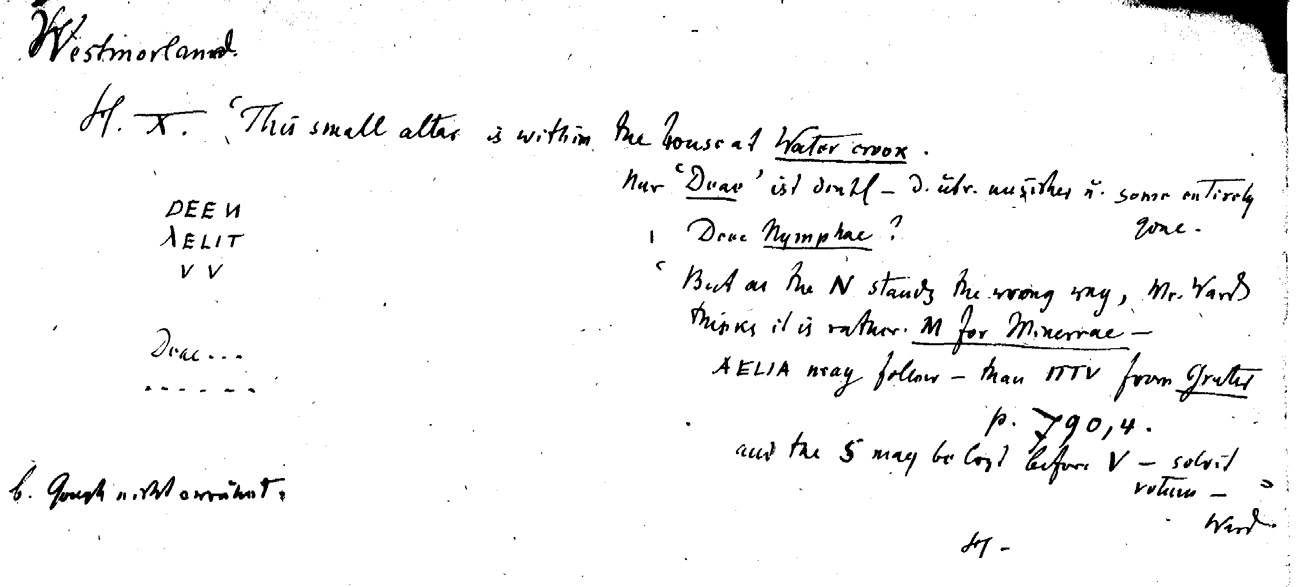 Westmorland.
H. X. ‘This small altar is within the house at Water crook.
Nur ‘Deae’ ist dtl – d. übr. unsicher u. some entirely
gone.
DEE И
λELIT
V V
Deae Nymphae?
‘But as the N stands the wrong way, Mr. Ward
thinks it is rather M for Minervae –
Deae...
------
AELIA may follow – than TITV from Gruter
p. 790,4.
and the S may be lost before V – solvit
votum – ’
Ward.
b. Gough nicht erwähnt.
H –